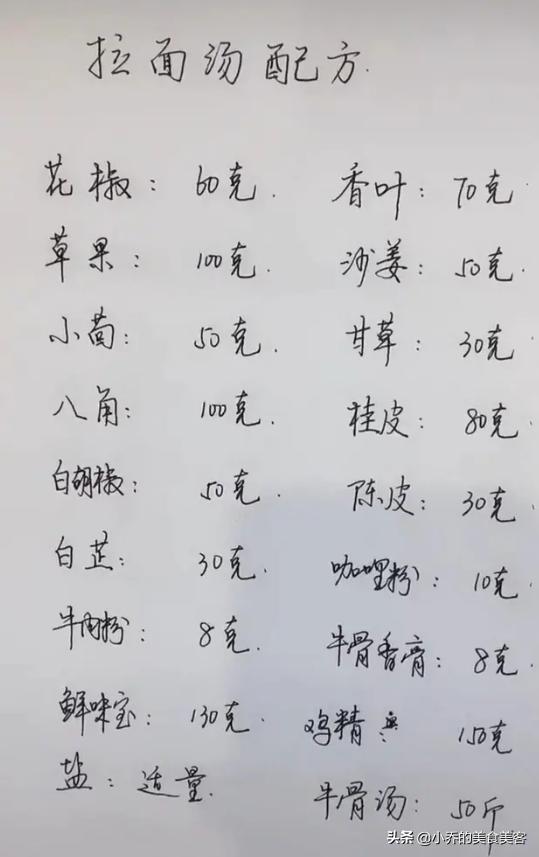 拉面汤配方.
花椒: 60克. 香叶: 70克.
草果: 100克. 沙姜: 50克.
小茴: 50克. 甘草: 30克.
八角: 100克. 桂皮: 80克.
白胡椒: 50克. 陈皮: 30克.
白芷: 30克. 咖哩粉: 10克.
牛肉粉: 8克. 牛骨香膏: 8克.
鲜味宝: 130克. 鸡精: 150克
盐: 适量. 牛骨汤: 50斤
头条 @小乔的美食美客